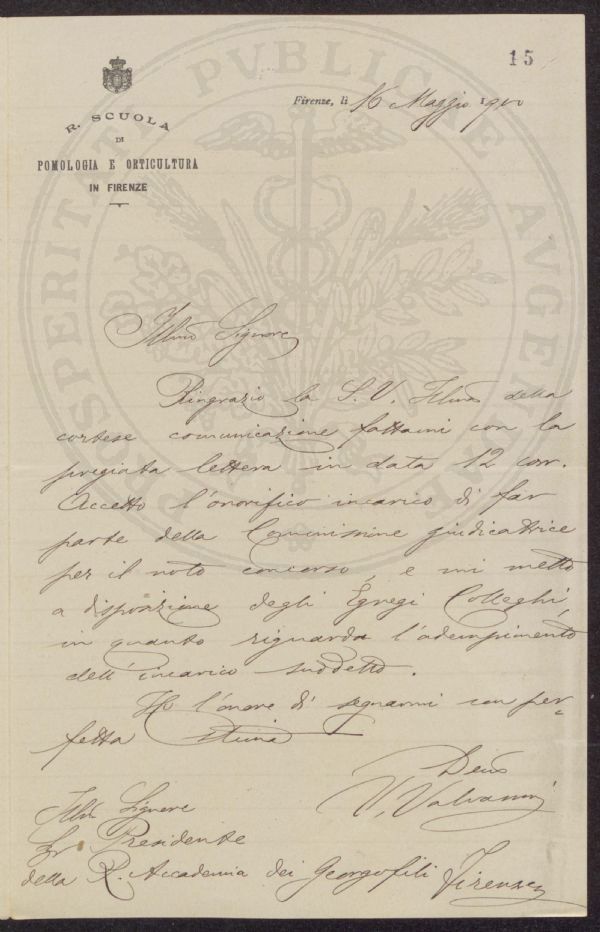 15
R. SCUOLA
DI
POMOLOGIA E ORTICULTURA
IN FIRENZE
Firenze, li 16 Maggio 1900
Illmo Signore
Ringrazio la S. V. Illma della
cortese comunicazione fattami con la
pregiata lettera in data 12 corr.
Accetto l'onorifico incarico di far
parte della Commissione giudicatrice
per il noto concorso, e mi metto
a disposizione degli Egregi Colleghi,
in quanto riguarda l'adempimento
dell'incarico suddetto.
Ho l'onore di segnarmi con per=
fetta stima
Devo
V. Valvassori
Illmo Signore
Sr Presidente
della R. Accademia dei Georgofili Firenze
PROSPERITATI PVBLICAE AVGENDAE